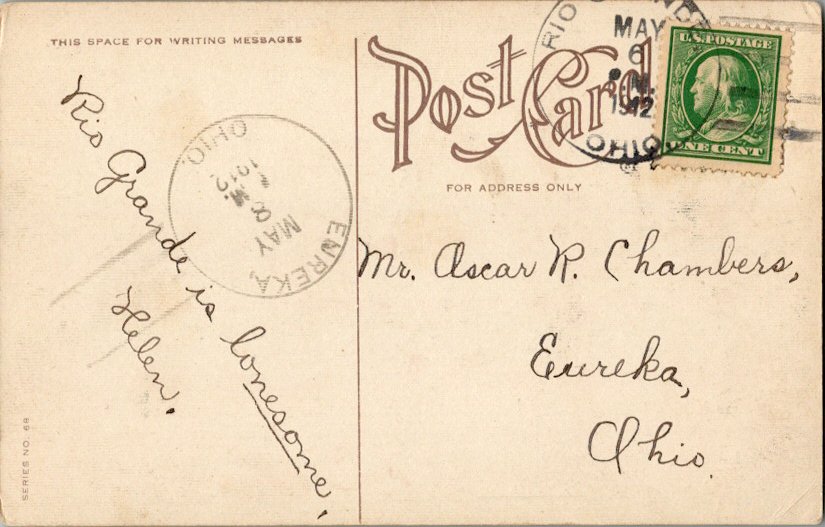 THIS SPACE FOR WRITING MESSAGES
Post Card
FOR ADDRESS ONLY
RIO GRANDE
MAY
6
M.
1912
OHIO
U.S. POSTAGE
ONE CENT
EUREKA,
MAY
M.
1912
OHIO
Rio Grande is lonesome,
Helen.
Mr. Oscar R. Chambers,
Eureka,
Ohio.
SERIES NO. 68